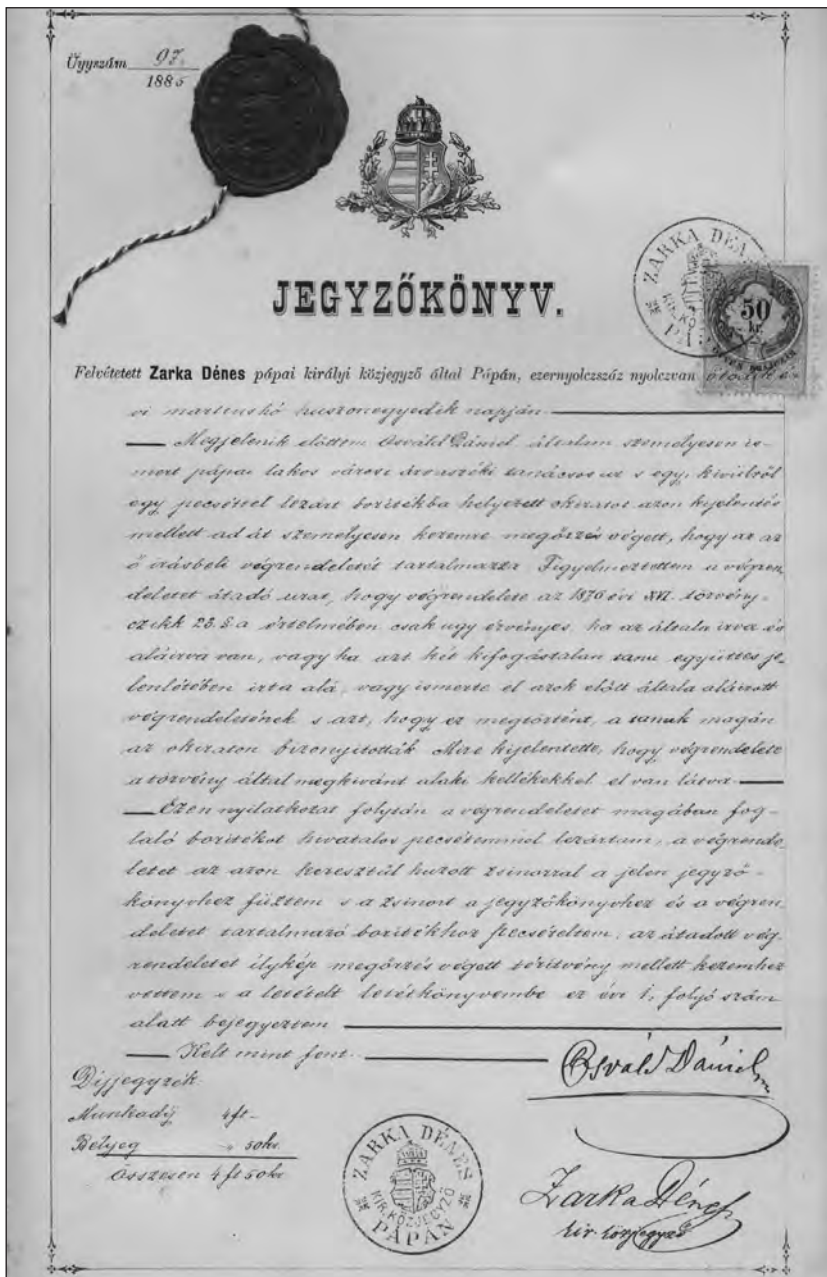 Ügyszám 97.
1885
JEGYZŐKÖNYV.
ZARKA DÉNES
KIR. KÖZJEGYZŐ
PÁPÁN
50
kr.
Felvétetett Zarka Dénes pápai királyi közjegyző által Pápán, ezernyolczszáz nyolczvan ötödik é-
vi martiushó huszonegyedik napján
Megjelenik előttem Osváld Dániel általam személyesen is-
mert pápai lakos városi árvaszéki tanácsos ur s egy, kivülről
egy pecséttel lezárt boritékba helyezett okiratot azon kijelentés
mellett ad át személyesen kezemre megőrzés végett, hogy az az
ő irásbeli végrendeletét tartalmazza Figyelmeztettem a végren-
deletet átadó urat, hogy végrendelete az 1876 évi XVI. törvény-
czikk 23.§.a értelmében csak ugy érvényes ha az általa irva és
aláirva van, vagy ha azt két kifogástalan tanu együttes je-
lenlétében irta alá, vagy ismerte el azok előtt általa aláirott
végrendeletének s azt, hogy ez megtörtént, a tanuk magán
az okiraton bizonyitották Mire kijelentette, hogy végrendelete
a törvény által megkivánt alaki kellékekkel el van látva
Ezen nyilatkozat folytán a végrendeletet magában fog-
laló boritékot hivatalos pecsétemmel lezártam, a végrende-
letet az azon keresztül huzott zsinorral a jelen jegyző-
könyvhez füztem s a zsinort a jegyzőkönyvhez és a végren-
deletet tartalmazó boritékhoz pecsételtem, az átadott vég-
rendeletet ilykép megőrzés végett téritvény mellett kezemhez
vettem s a letételt letétkönyvembe ez évi 1, folyó szám
alatt bejegyeztem
Kelt mint fent.
Osváld Dániel
Dijjegyzék
Munkadij 4 ft
Bélyeg " 50 kr
Összesen 4 ft 50 kr
ZARKA DÉNES
KIR. KÖZJEGYZŐ
PÁPÁN
Zarka Dénes
kir. közjegyző